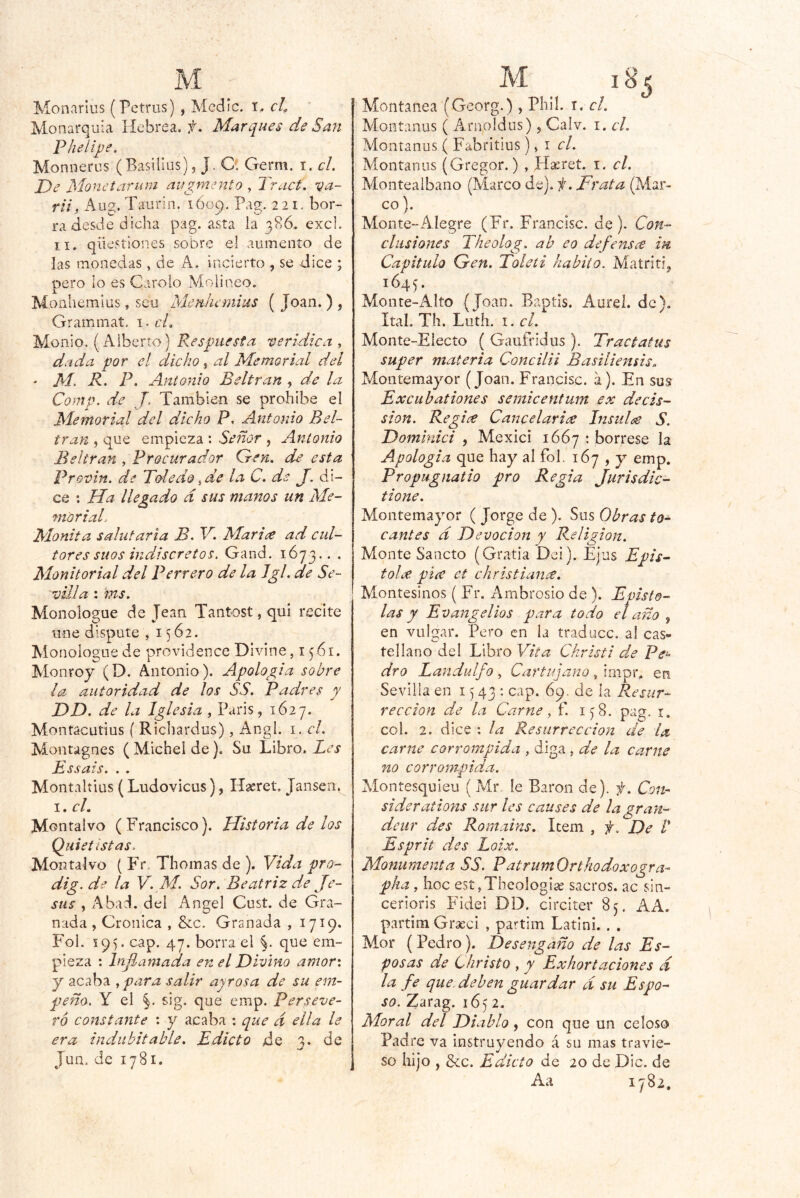 M
Monarius (Petrus) , Medic. 1. cl.
Monarquia Hebrea. ℣. Marques de San
Phelipe.
Monnerus (Basilius), J. C. Germ. 1. cl.
De Monetarum augmento , Tract. va-
rii, Aug. Taurin. 1609. Pag. 221. bor-
ra desde dicha pag. asta la 386. excl.
11. qüestiones sobre el aumento de
las monedas , de A. incierto , se dice ;
pero lo es Carolo Molineo.
Monhemius, seu Menhemius ( Joan. ) ,
Grammat. 1. cl.
Monio. ( Alberto ) Respuesta veridica ,
dada por el dicho , al Memorial del
M. R. P. Antonio Beltran , de la
Comp. de J. Tambien se prohibe el
Memorial del dicho P. Antonio Bel-
tran , que empieza : Señor , Antonio
Beltran , Procurador Gen. de esta
Provin. de Toledo , de la C. de J. di-
ce : Ha llegado á sus manos un Me-
morial.
Monita salutaria B. V. Mariæ ad cul-
tores suos indiscretos. Gand. 1673. . .
Monitorial del Perrero de la Igl. de Se-
villa : ms.
Monologue de Jean Tantost, qui recite
une dispute , 1562.
Monologue de providence Divine, 1561.
Monroy (D. Antonio). Apologia sobre
la autoridad de los SS. Padres y
DD. de la Iglesia , Paris, 1627.
Montacutius ( Richardus) , Angl. 1. cl.
Montagnes ( Michel de ). Su Libro. Les
Essais. . .
Montaltius ( Ludovicus ) , Hæret. Jansen.
1. cl.
Montalvo ( Francisco ). Historia de los
Quietistas.
Montalvo ( Fr. Thomas de ). Vida pro-
dig. de la V. M. Sor. Beatriz de Je-
sus , Abad. del Angel Cust. de Gra-
nada , Cronica , &c. Granada , 1719.
Fol. 195. cap. 47. borra el §. que em-
pieza : Inflamada en el Divino amor:
y acaba , para salir ayrosa de su em-
peño. Y el §. sig. que emp. Perseve-
ró constante : y acaba : que á ella le
era indubitable. Edicto de 3. de
Jun. de 1781.
M 185
Montanea (Georg.) , Phil. 1. cl.
Montanus ( Arnoldus) , Calv. 1. cl.
Montanus ( Fabritius ) , 1 cl.
Montanus (Gregor. ) , Hæret. 1. cl.
Montealbano (Marco de). ℣. Frata (Mar-
co ).
Monte-Alegre (Fr. Francisc. de ). Con-
clusiones Theolog. ab eo defensæ in
Capitulo Gen. Toleti habito. Matriti,
1645.
Monte-Alto (Joan. Baptis. Aurel. de).
Ital. Th. Luth. 1. cl.
Monte-Electo ( Gaufridus ). Tractatus
super materia Concilii Basiliensis.
Montemayor ( Joan. Francisc. à ). En sus
Excubationes semicentum ex decis-
sion. Regiæ Cancelariæ Insulæ S.
Dominici , Mexici 1667 : borrese la
Apologia que hay al fol. 167 , y emp.
Propugnatio pro Regia Jurisdic-
tione.
Montemayor ( Jorge de ). Sus Obras to-
cantes á Devocion y Religion.
Monte Sancto ( Gratia Dei ). Ejus Epis-
tolæ piæ et christianæ.
Montesinos ( Fr. Ambrosio de ). Episto-
las y Evangelios para todo el año ,
en vulgar. Pero en la traducc. al cas-
tellano del Libro Vita Christi de Pe-
dro Landulfo , Cartujano , impr. en
Sevilla en 1543 : cap. 69. de la Resur-
reccion de la Carne, f. 158. pag. 1.
col. 2. dice : la Resurreccion de la
carne corrompida , diga , de la carne
no corrompida.
Montesquieu ( Mr. le Baron de). ℣. Con-
siderations sur les causes de la gran-
deur des Romains. Item , ℣. De l'
Esprit des Loix.
Monumenta SS. Patrum Orthodoxogra-
pha , hoc est, Theologiæ sacros. ac sin-
cerioris Fidei DD. circiter 85. AA.
partim Græci , partim Latini. . .
Mor ( Pedro ). Desengaño de las Es-
posas de Christo , y Exhortaciones á
la fe que deben guardar á su Espo-
so. Zarag. 1652.
Moral del Diablo , con que un celoso
Padre va instruyendo á su mas travie-
so hijo , &c. Edicto de 20 de Dic. de
Aa 1782.